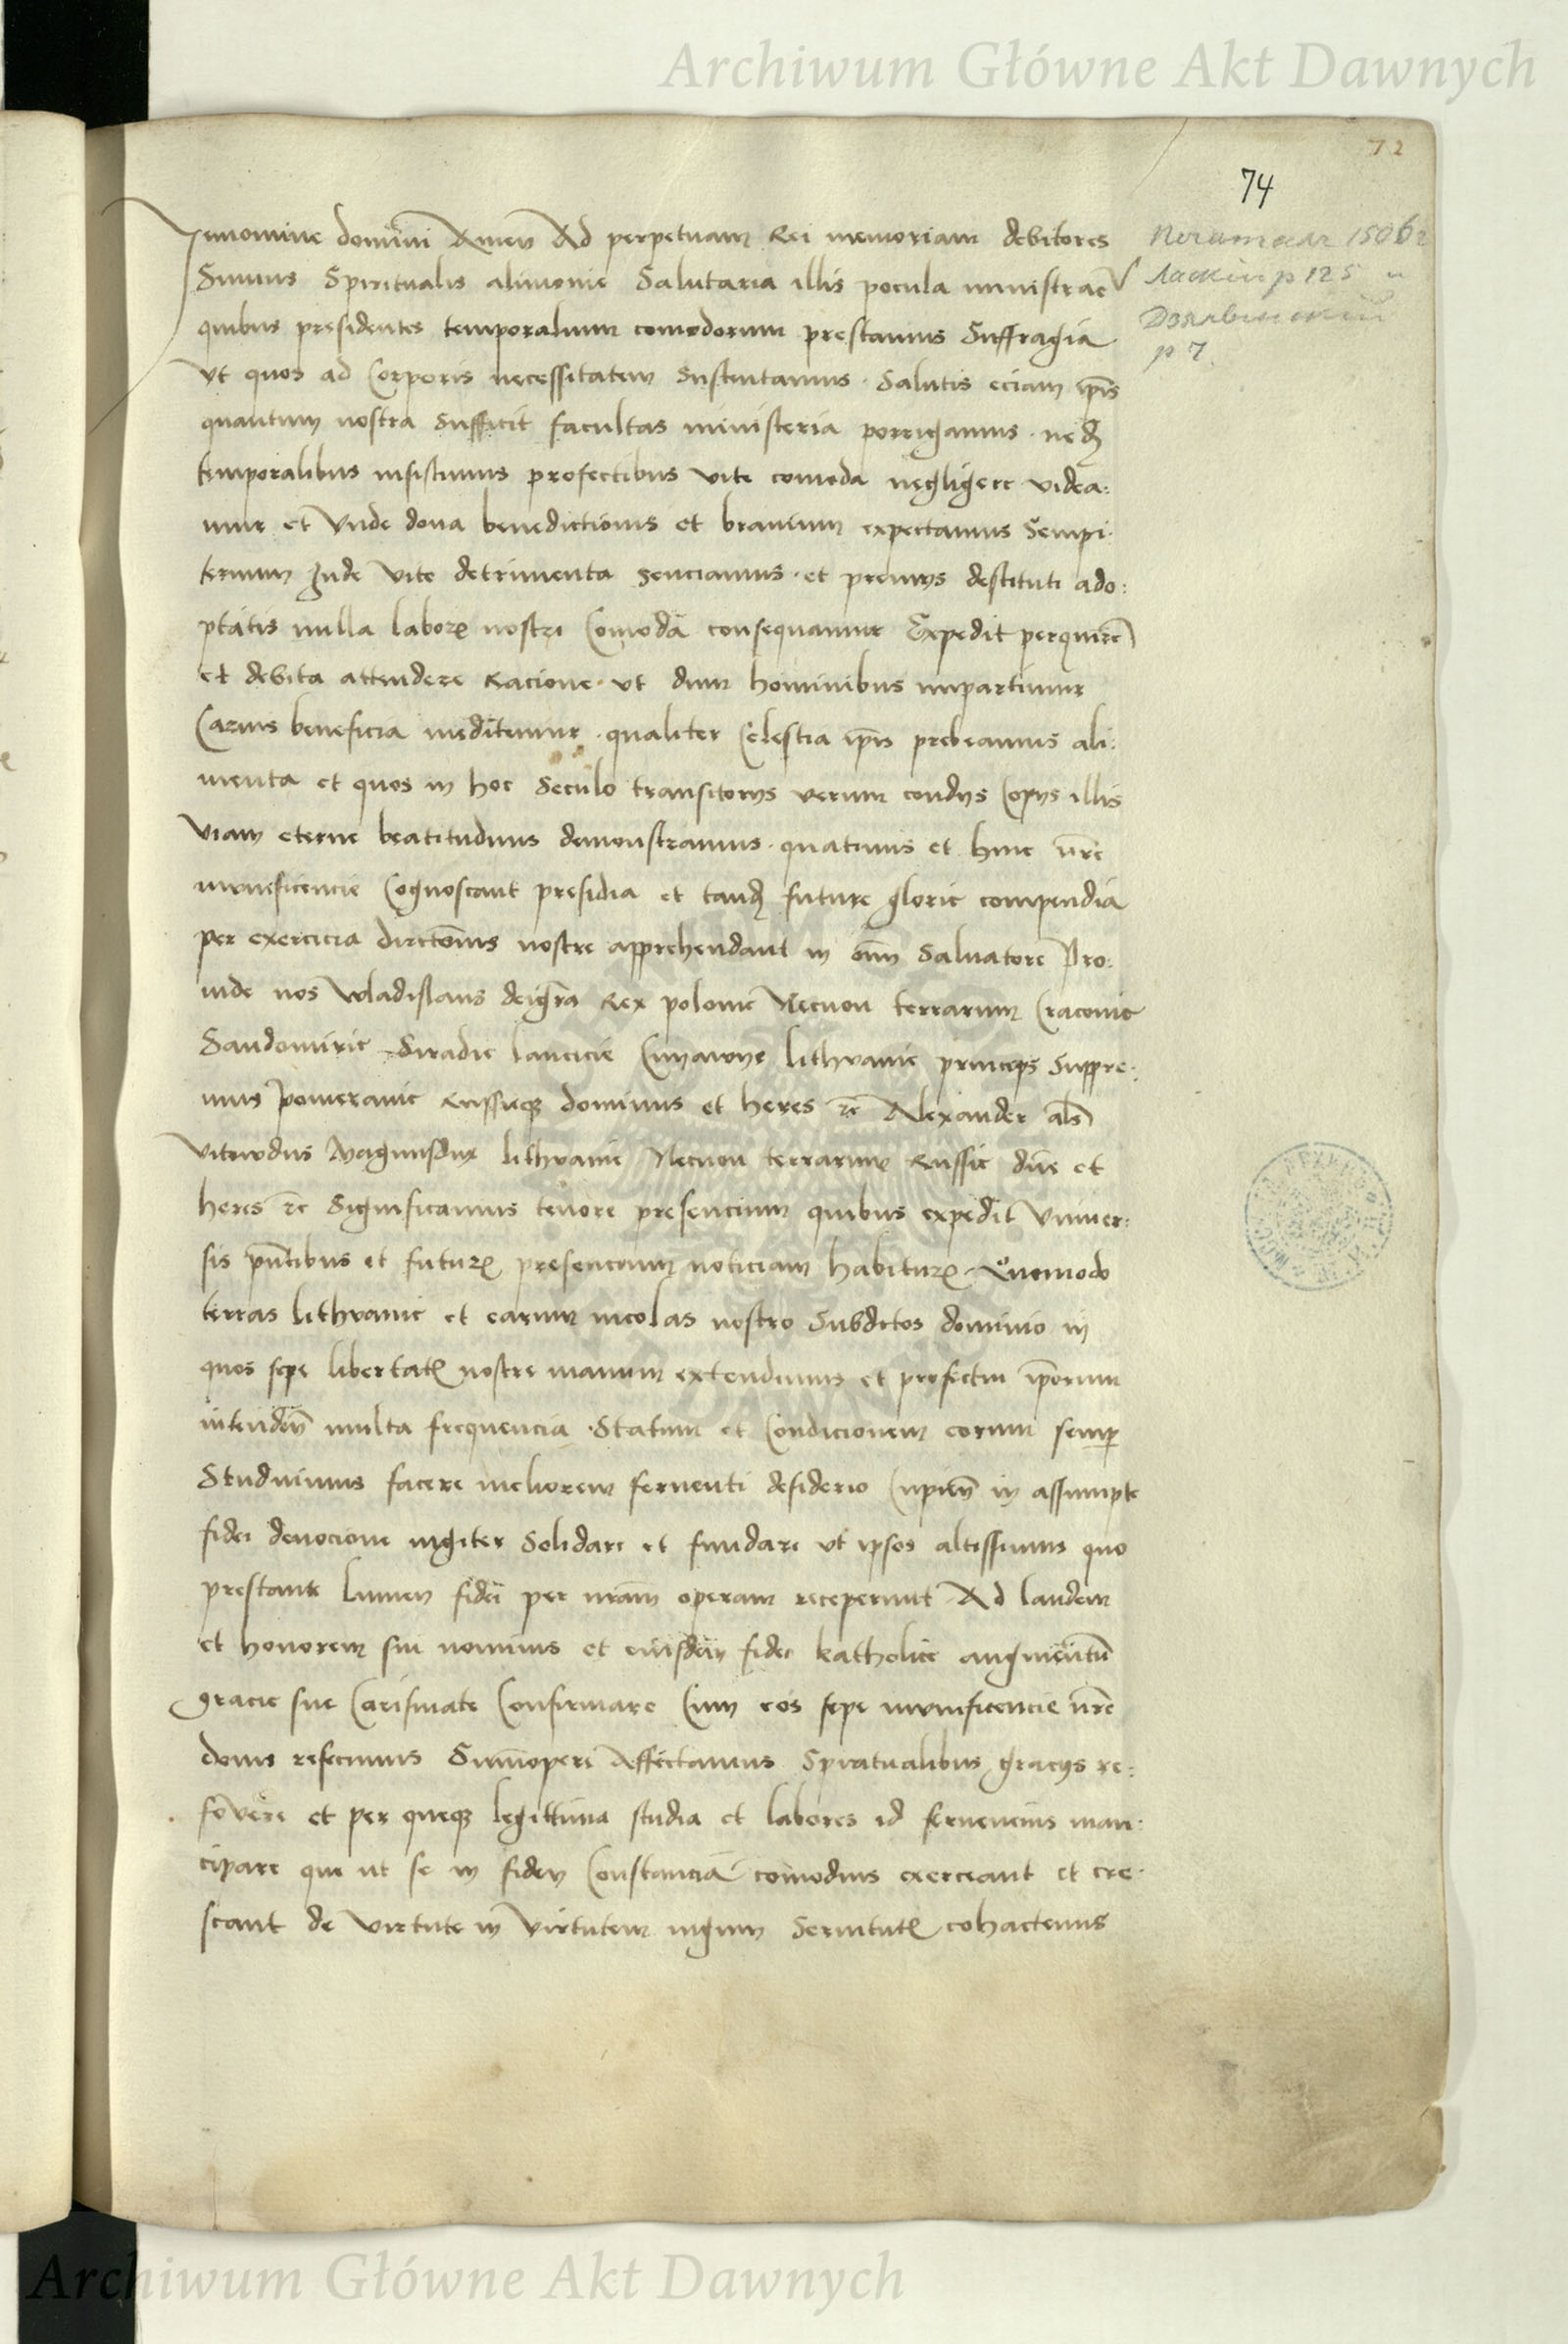 Archiwum Główne Akt Dawnych
72
74
Innomine domini Amen Ad perpetuam Rei memoriam debitores
Sumus Spiritualis alimonie Salutaria illis pocula ministrare
quibus presidentes temporalium comodorum prestamus Suffragia
Vt quos ad Corporis necessitatem Sustentamus . Salutis eciam ip̄is
quantum nostra Sufficit facultas ministeria porrigamus . ne dū
temporalibus insistimus profectibus vite comoda negligere videa:
mur et Vnde dona benedictionis et bravium expectamus Sempi:
ternum Inde Vite detrimenta Senciamus . et premys destituti ado:
ptatis nulla laborꝝ nostri Comoda consequamur Expedit perquirere
et debita attendere Racione . vt dum hominibus impartimur
Carnis beneficia meditemur . qualiter Celestia ip̄is prebeamus ali:
menta et quos in hoc Seculo transitorys rerum condys Copys illis
Viam eterne beatitudinis demonstramus . quatinus et hinc nr̄e
munificencie Cognoscant presidia et tandē future glorie compendia
per exercicia direc̄tonis nostre apprehendant in om̄ Salvatore Pro:
inde nos Wladislaus dei gr̄a Rex polonie Necnon terrarum Cracovie
Sandomirie Siradie lancicie Cuyavye lithvanie princeps Suppre:
mus Pomeranie Russieqꝫ dominus et heres ⁊c̄ Alexander al̄s
Vitowdus Magnus dux lithvanie Necnon terrarum Russie dn̄s et
heres ⁊c̄ Significamus tenore presencium quibus expedit Vniver:
sis pn̄tibus et futurꝭ presencium noticiam habiturꝭ . Quomodo
terras lithvanie et earum incolas nostro Subditos dominio in
quos sepe libertatꝭ nostre manum extendimus et profectui ip̄orum
intendeñ multa frequencia . Statum et Condicionem eorum semꝑ
Studuimus facere meliorem ferventi desiderio Cupieñ in assumpte
fidei devocione iugiter Solidari et fundari vt ipsos altissimus quo
prestante Lumen fidei per nr̄am operam receperunt Ad laudem
et honorem sui nominis et eiusdem fidei katholice augmentū
gracie sue Carismate Confirmare Cum eos sepe munificencie nr̄e
donis refecimus Summopere Affectamus Spiritualibus gracys re:
fovere et per queqꝫ legittima studia et labores id fervencius man:
cipare qui ut se in fidey Constanciā comodius exerceant et cre:
scant de Virtute in Virtutem iugum Servitutꝭ cohactenus
Archiwum Główne Akt Dawnych